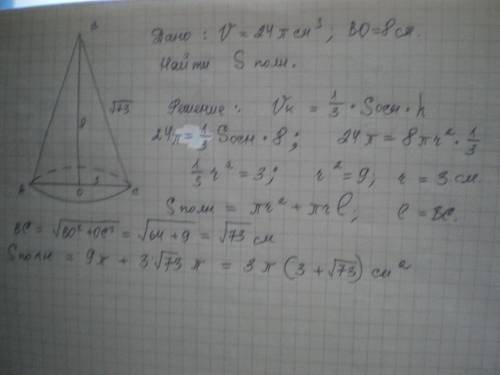 Дано: V = 24π см³; BO = 8 см.
Найти S полн.
B
√73
8
A
O
3
C
Решение: Vк = 1/3 · Sосн · h
24π = 1/3 Sосн · 8; 24π = 8πr² · 1/3
1/3 r² = 3; r² = 9; r = 3 см.
S полн = πr² + πrl, l = BC.
BC = √BO² + OC² = √64 + 9 = √73 см
S полн = 9π + 3√73 π = 3π(3 + √73) см²